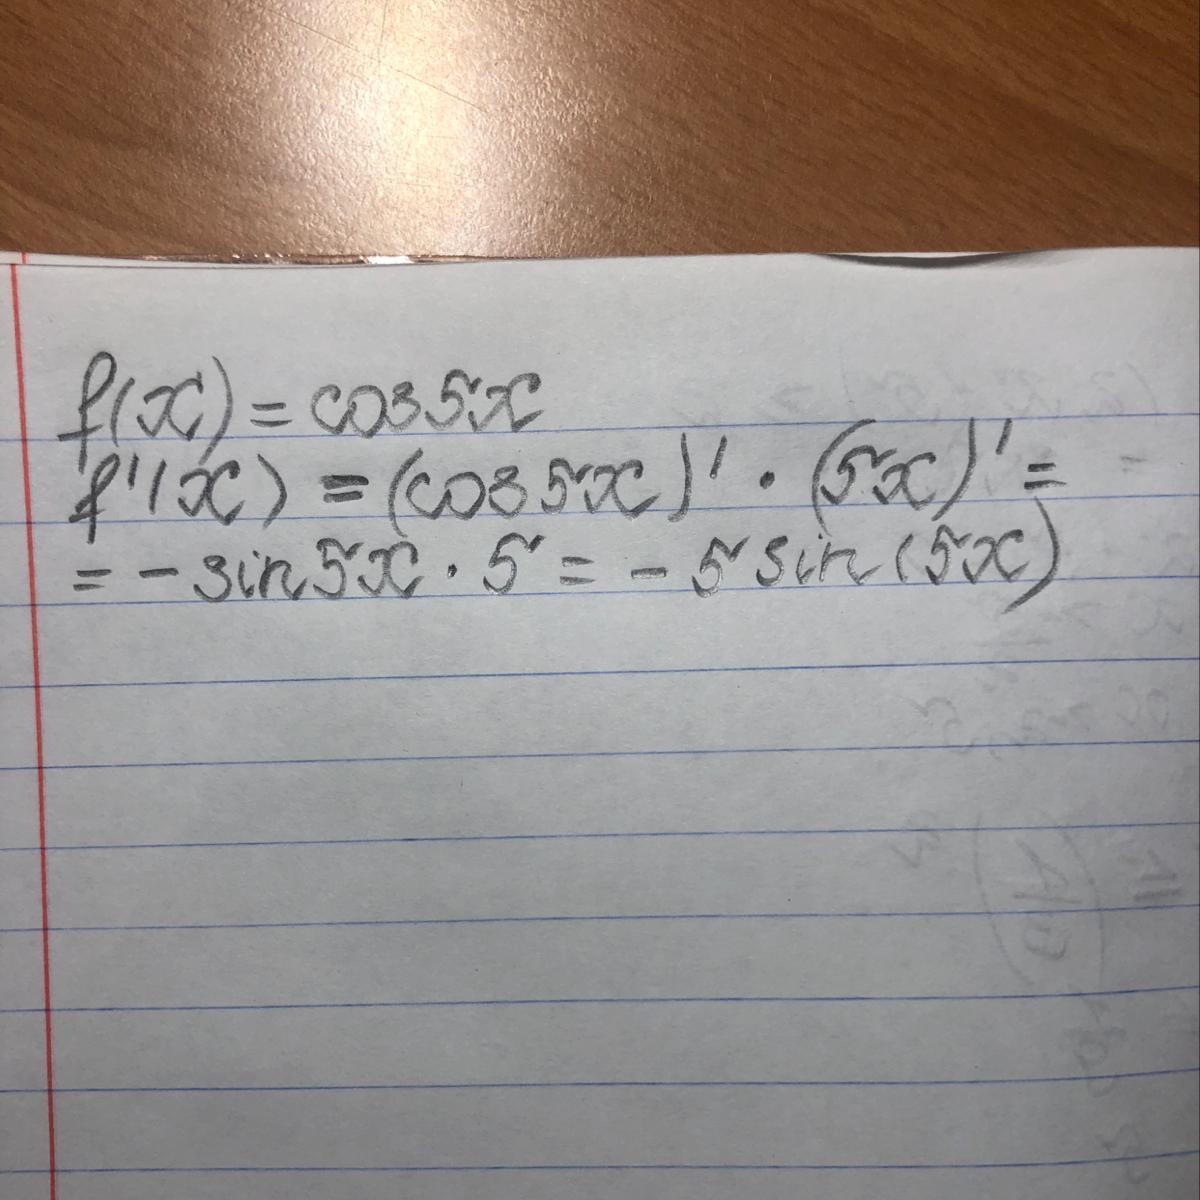 f(x) = cos5x
f'(x) = (cos5x)' · (5x)' =
= - sin5x · 5 = - 5 sin(5x)